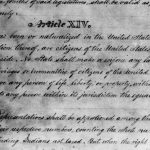 of said legislatures, shall be valid as
Article XIV.
born or naturalized in the United States
thereof, are citizens of the United States
reside. No State shall make or enforce any la
or immunities of citizens of the United
any person of life, liberty, or property, witho
any person within its jurisdiction the equal
Representatives shall be apportioned among the
respective numbers, counting the whole num
Indians not taxed. But when the right